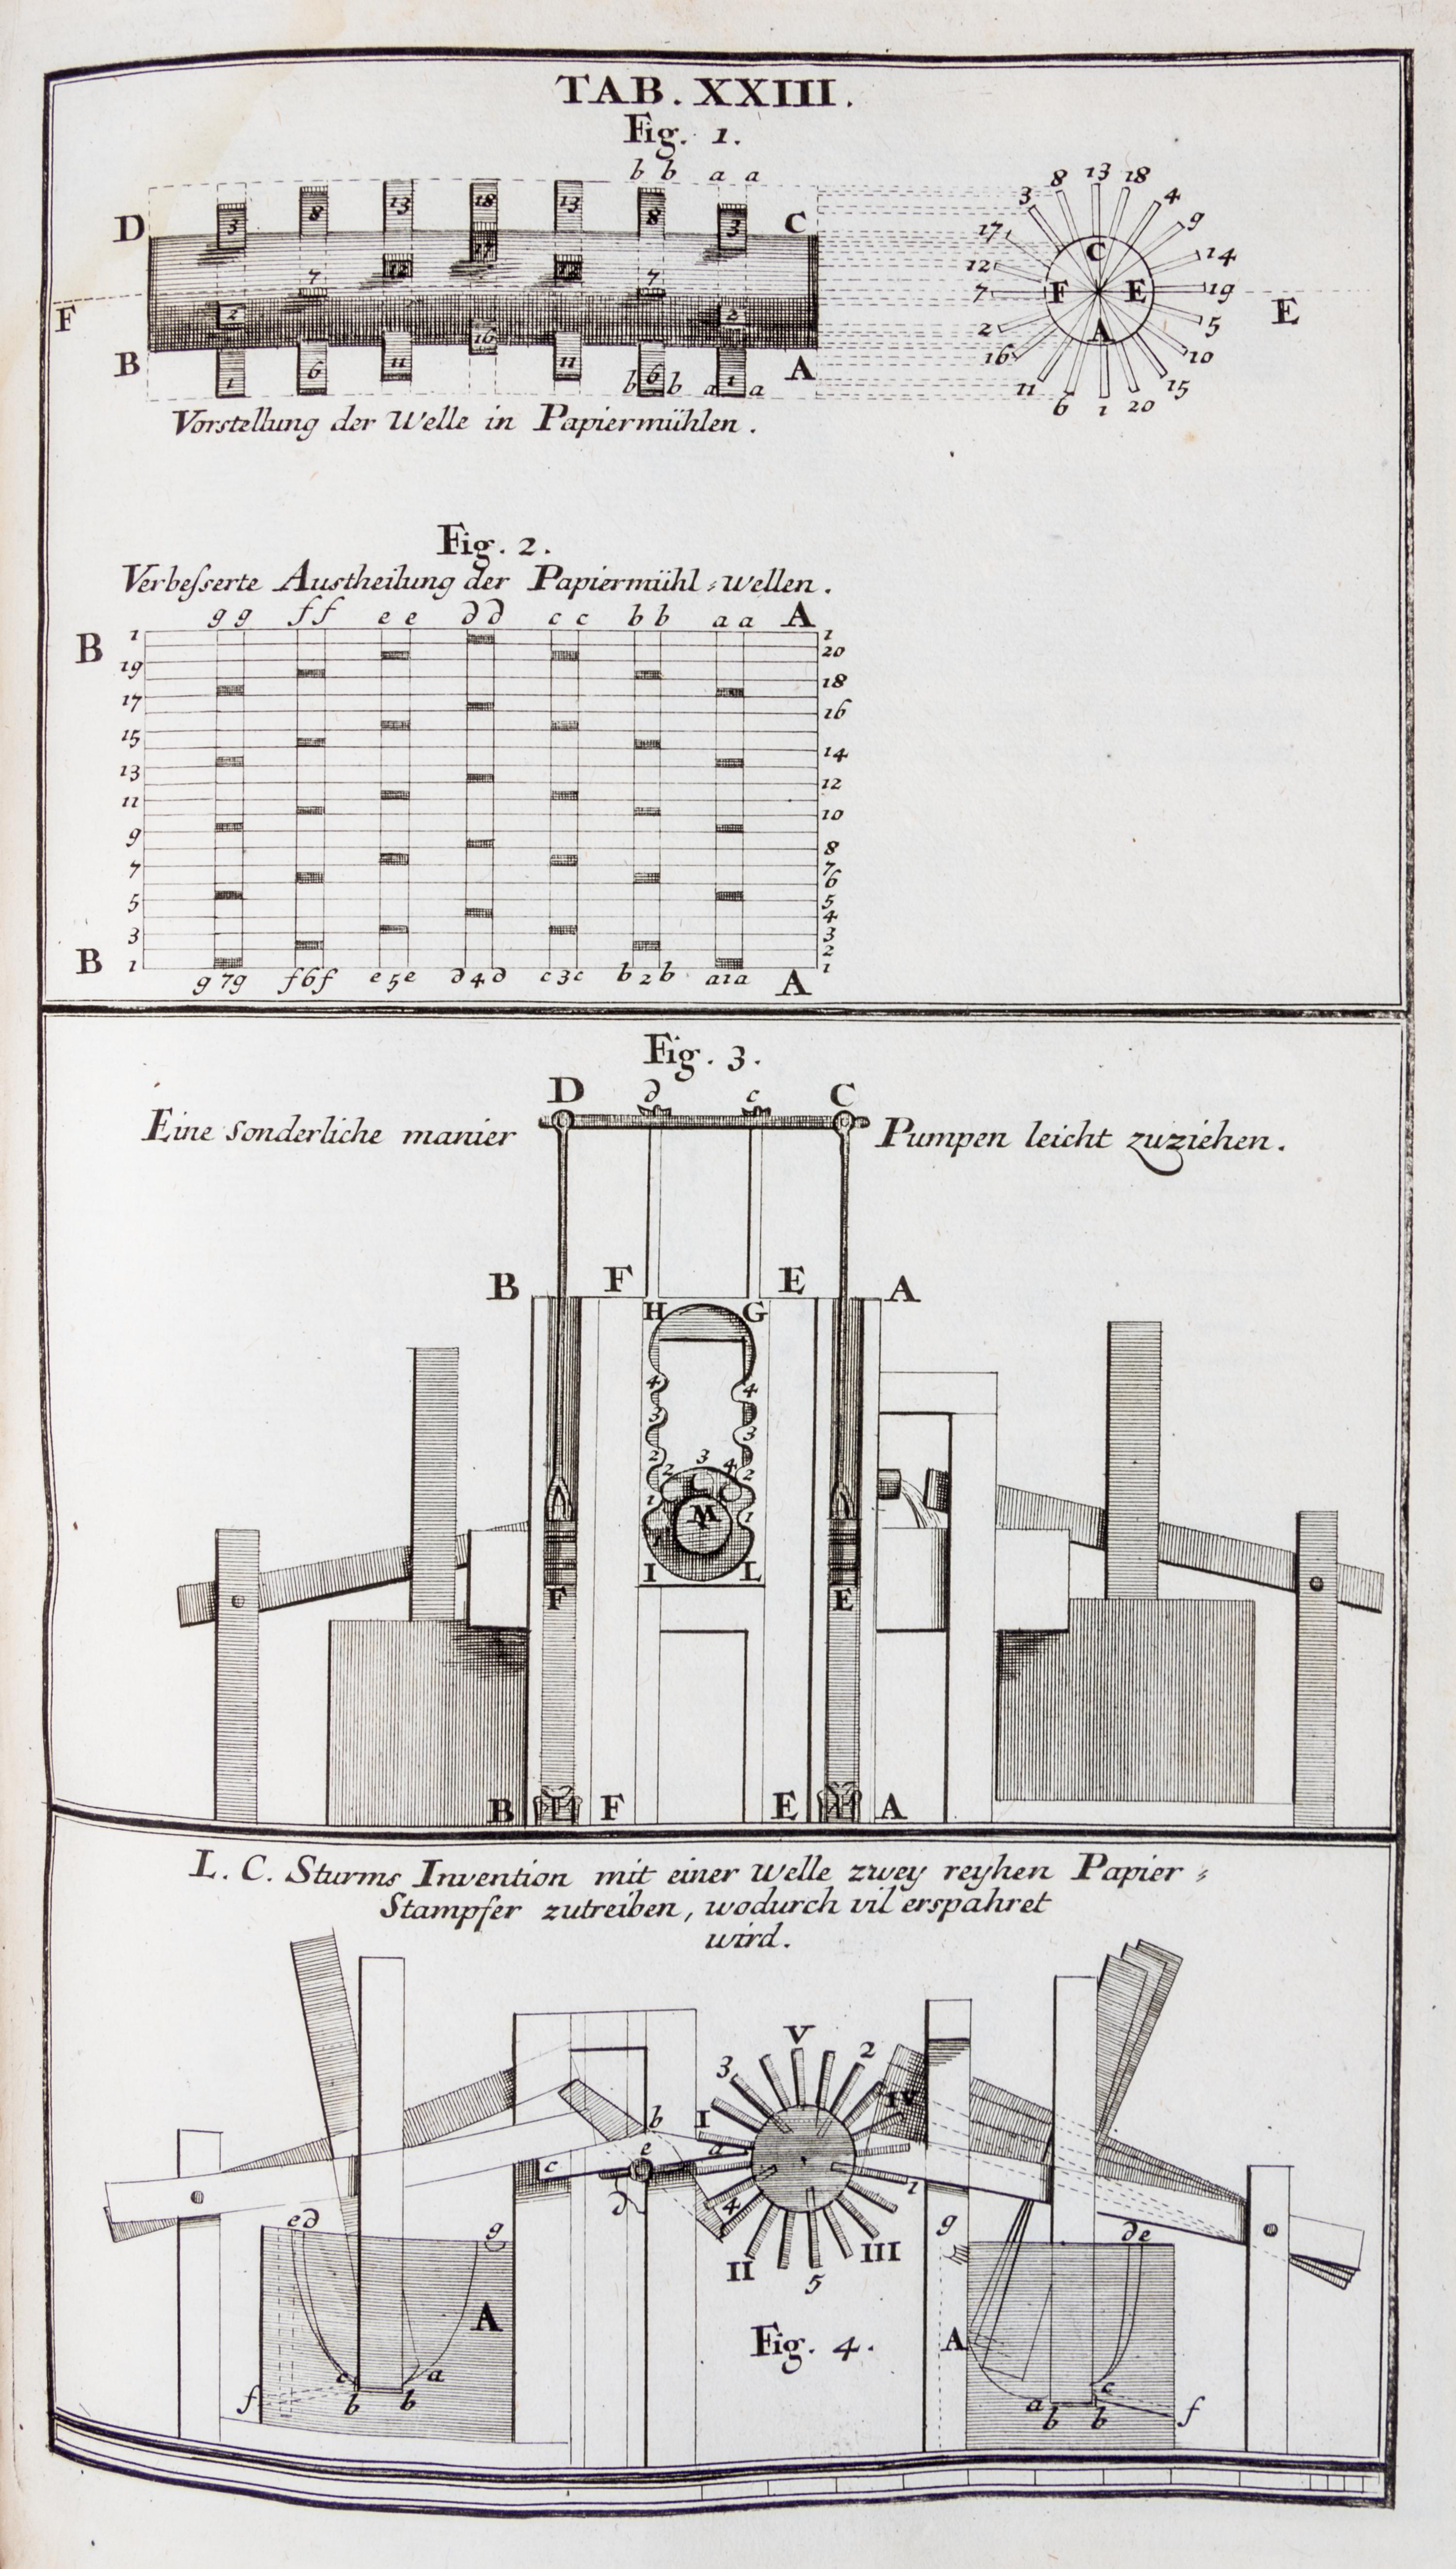 TAB. XXIII.
Fig. 1.
b b a a
3 8 13 18 13 8 3
D C
17
12 12
7 7
F
2 2
16
B 1 6 11 11 b 6 b a 1 a A
8 13 18
3 4
17 9
C
12 14
7 F E 19 E
2 A 5
16 10
11 15
6 1 20
Vorstellung der Welle in Papiermühlen.
Fig. 2.
Verbesserte Austheilung der Papiermühl-wellen.
g g f f e e d d c c b b a a A
B 1 1
20
19
18
17
16
15
14
13
12
11
10
9
8
7 7
6
5 5
4
3 3
2
B 1 1
g 7 g f 6 f e 5 e d 4 d c 3 c b 2 b a 1 a A
Fig. 3.
D d c C
Eine sonderliche manier Pumpen leicht zuziehen.
B F E A
H G
4 4
3 3
2 2 3 4 2
1 M 1
I L
F E
B F E A
L. C. Sturms Invention mit einer Welle zwey reyhen Papier-
Stampfer zutreiben, wodurch vil erspahret
wird.
V
3 2
b I IV
c e a
d 4 1
e d g II III g d e
5
A Fig. 4. A
f c a a c f
b b b b